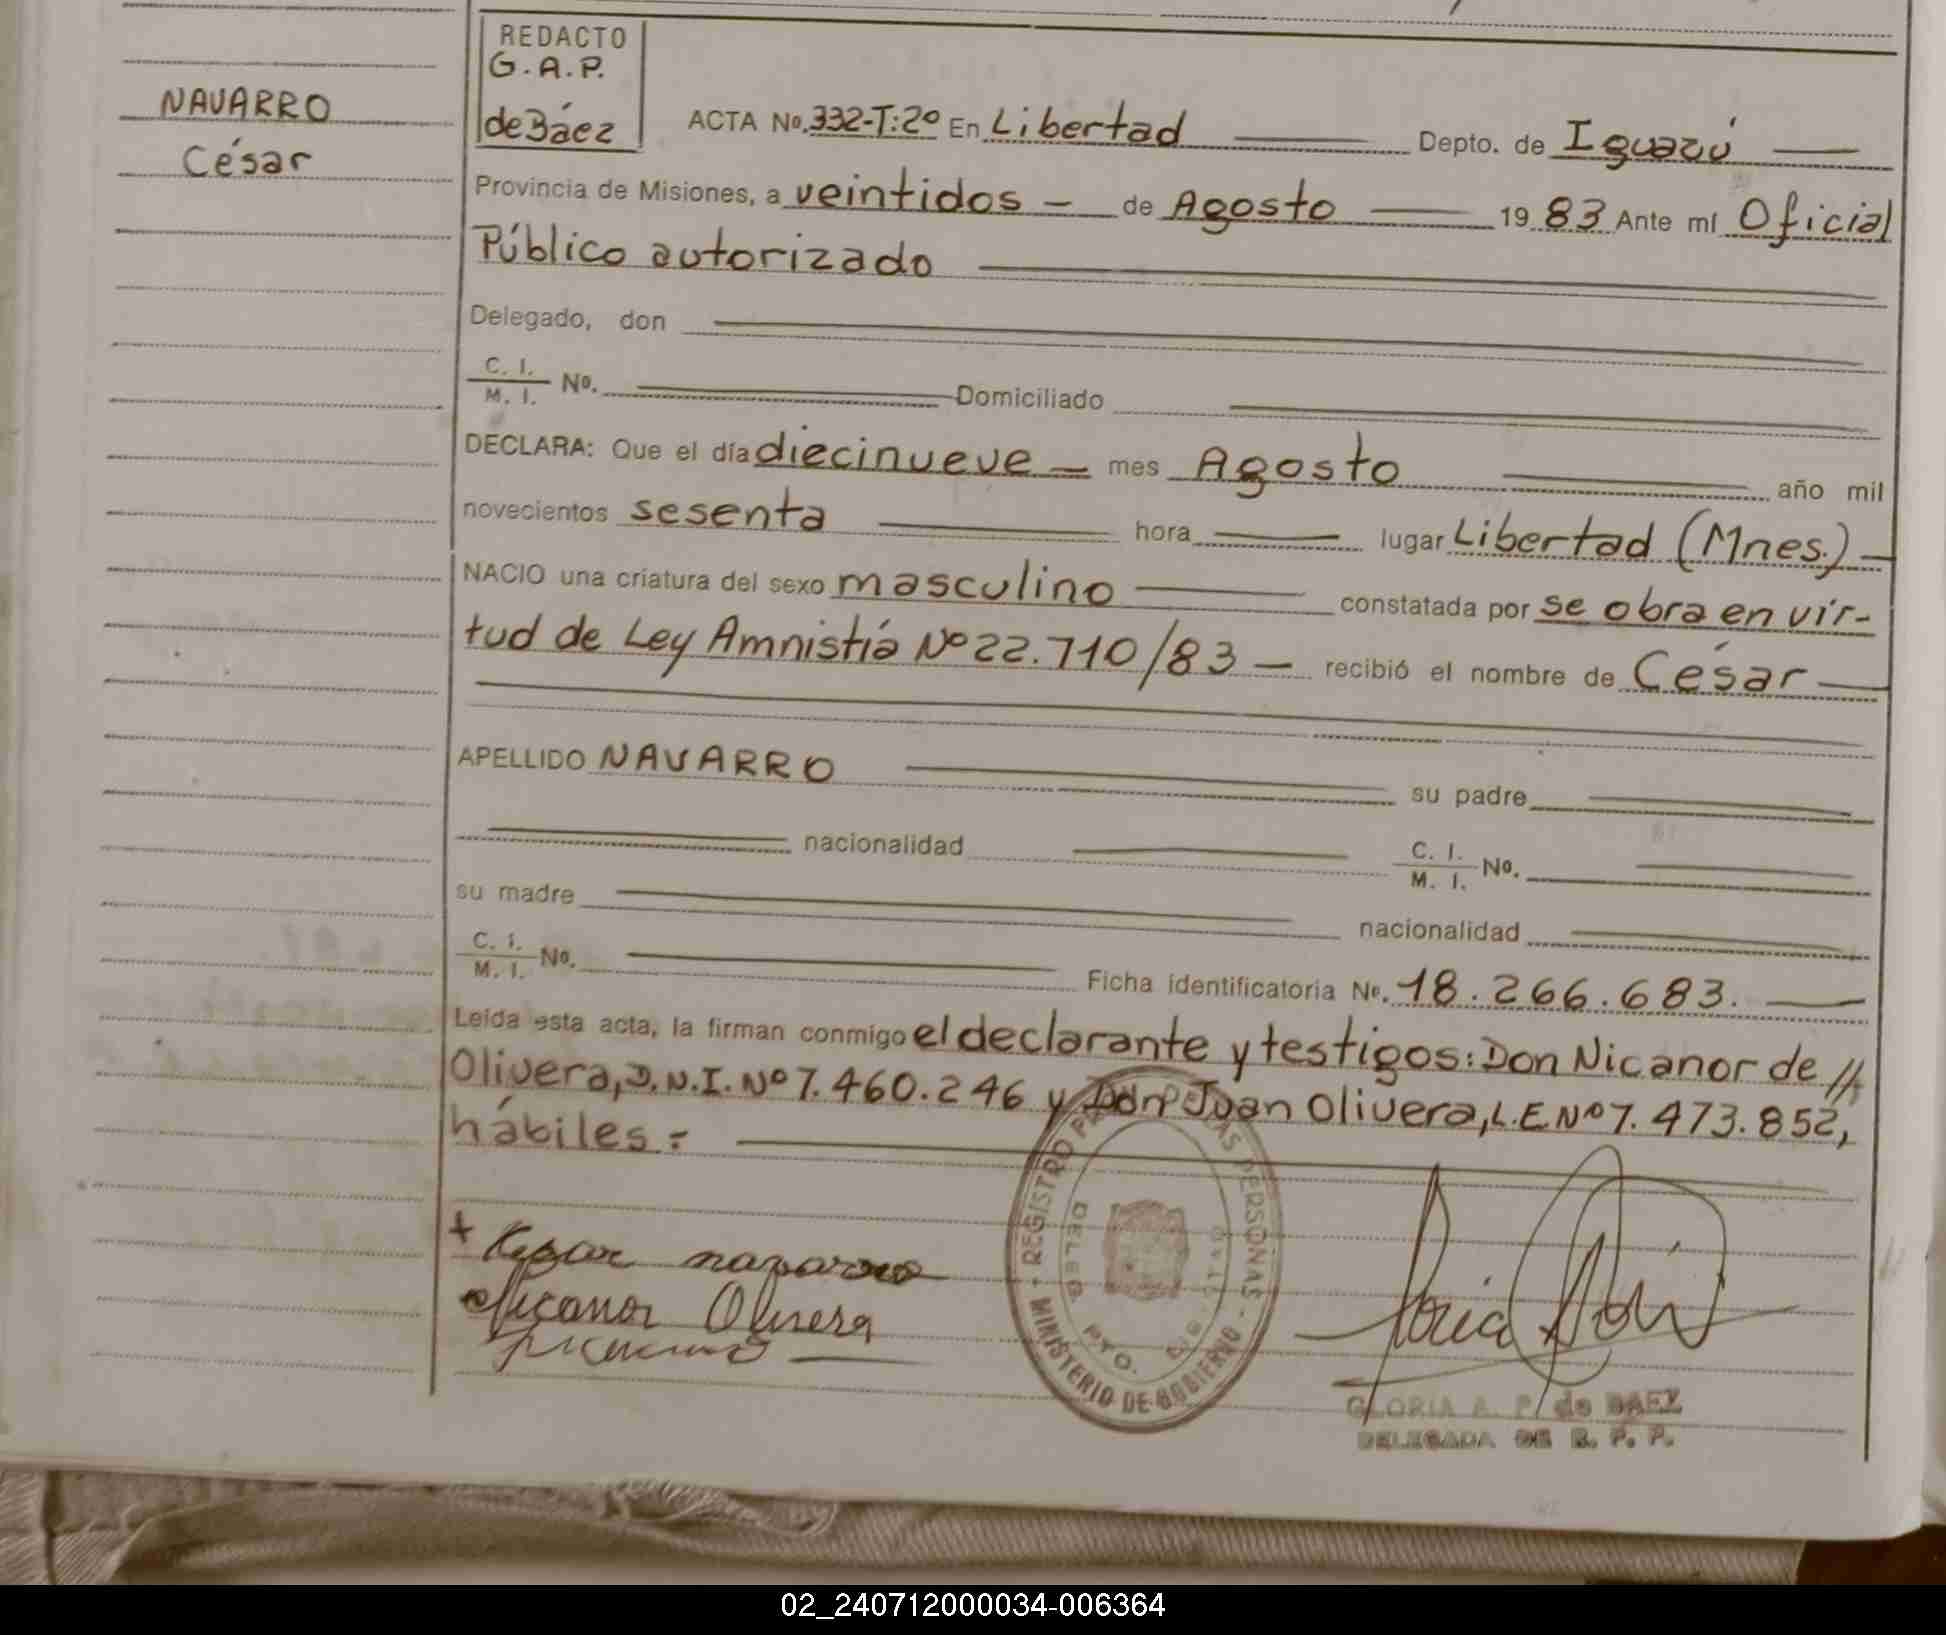 REDACTO
G.A.P.
de Báez
NAVARRO
César
ACTA No. 332-T:2º En Libertad Depto. de Iguazú
Provincia de Misiones, a veintidos - de Agosto 19 83 Ante mí Oficial
Público autorizado
Delegado, don
C. I. / M. I. No. Domiciliado
DECLARA: Que el día diecinueve - mes Agosto año mil
novecientos sesenta hora lugar Libertad (Mnes.)
NACIO una criatura del sexo masculino constatada por se obra en vir-
tud de Ley Amnistía Nº 22.710/83 - recibió el nombre de César
APELLIDO NAVARRO su padre
nacionalidad C. I. / M. I. No.
su madre nacionalidad
C. I. / M. I. No. Ficha identificatoria No. 18.266.683.
Leída esta acta, la firman conmigo el declarante y testigos: Don Nicanor de //
Olivera, D.N.I. Nº 7.460.246 y Don Juan Olivera, L.E. Nº 7.473.852,
hábiles.-
+ Kesar navarro
Nicanor Olivera
REGISTRO PERSONAS
MINISTERIO DE GOBIERNO
DELEG.
PTO.
GLORIA A. P. de BAEZ
DELEGADA DE R. P. P.
02_240712000034-006364